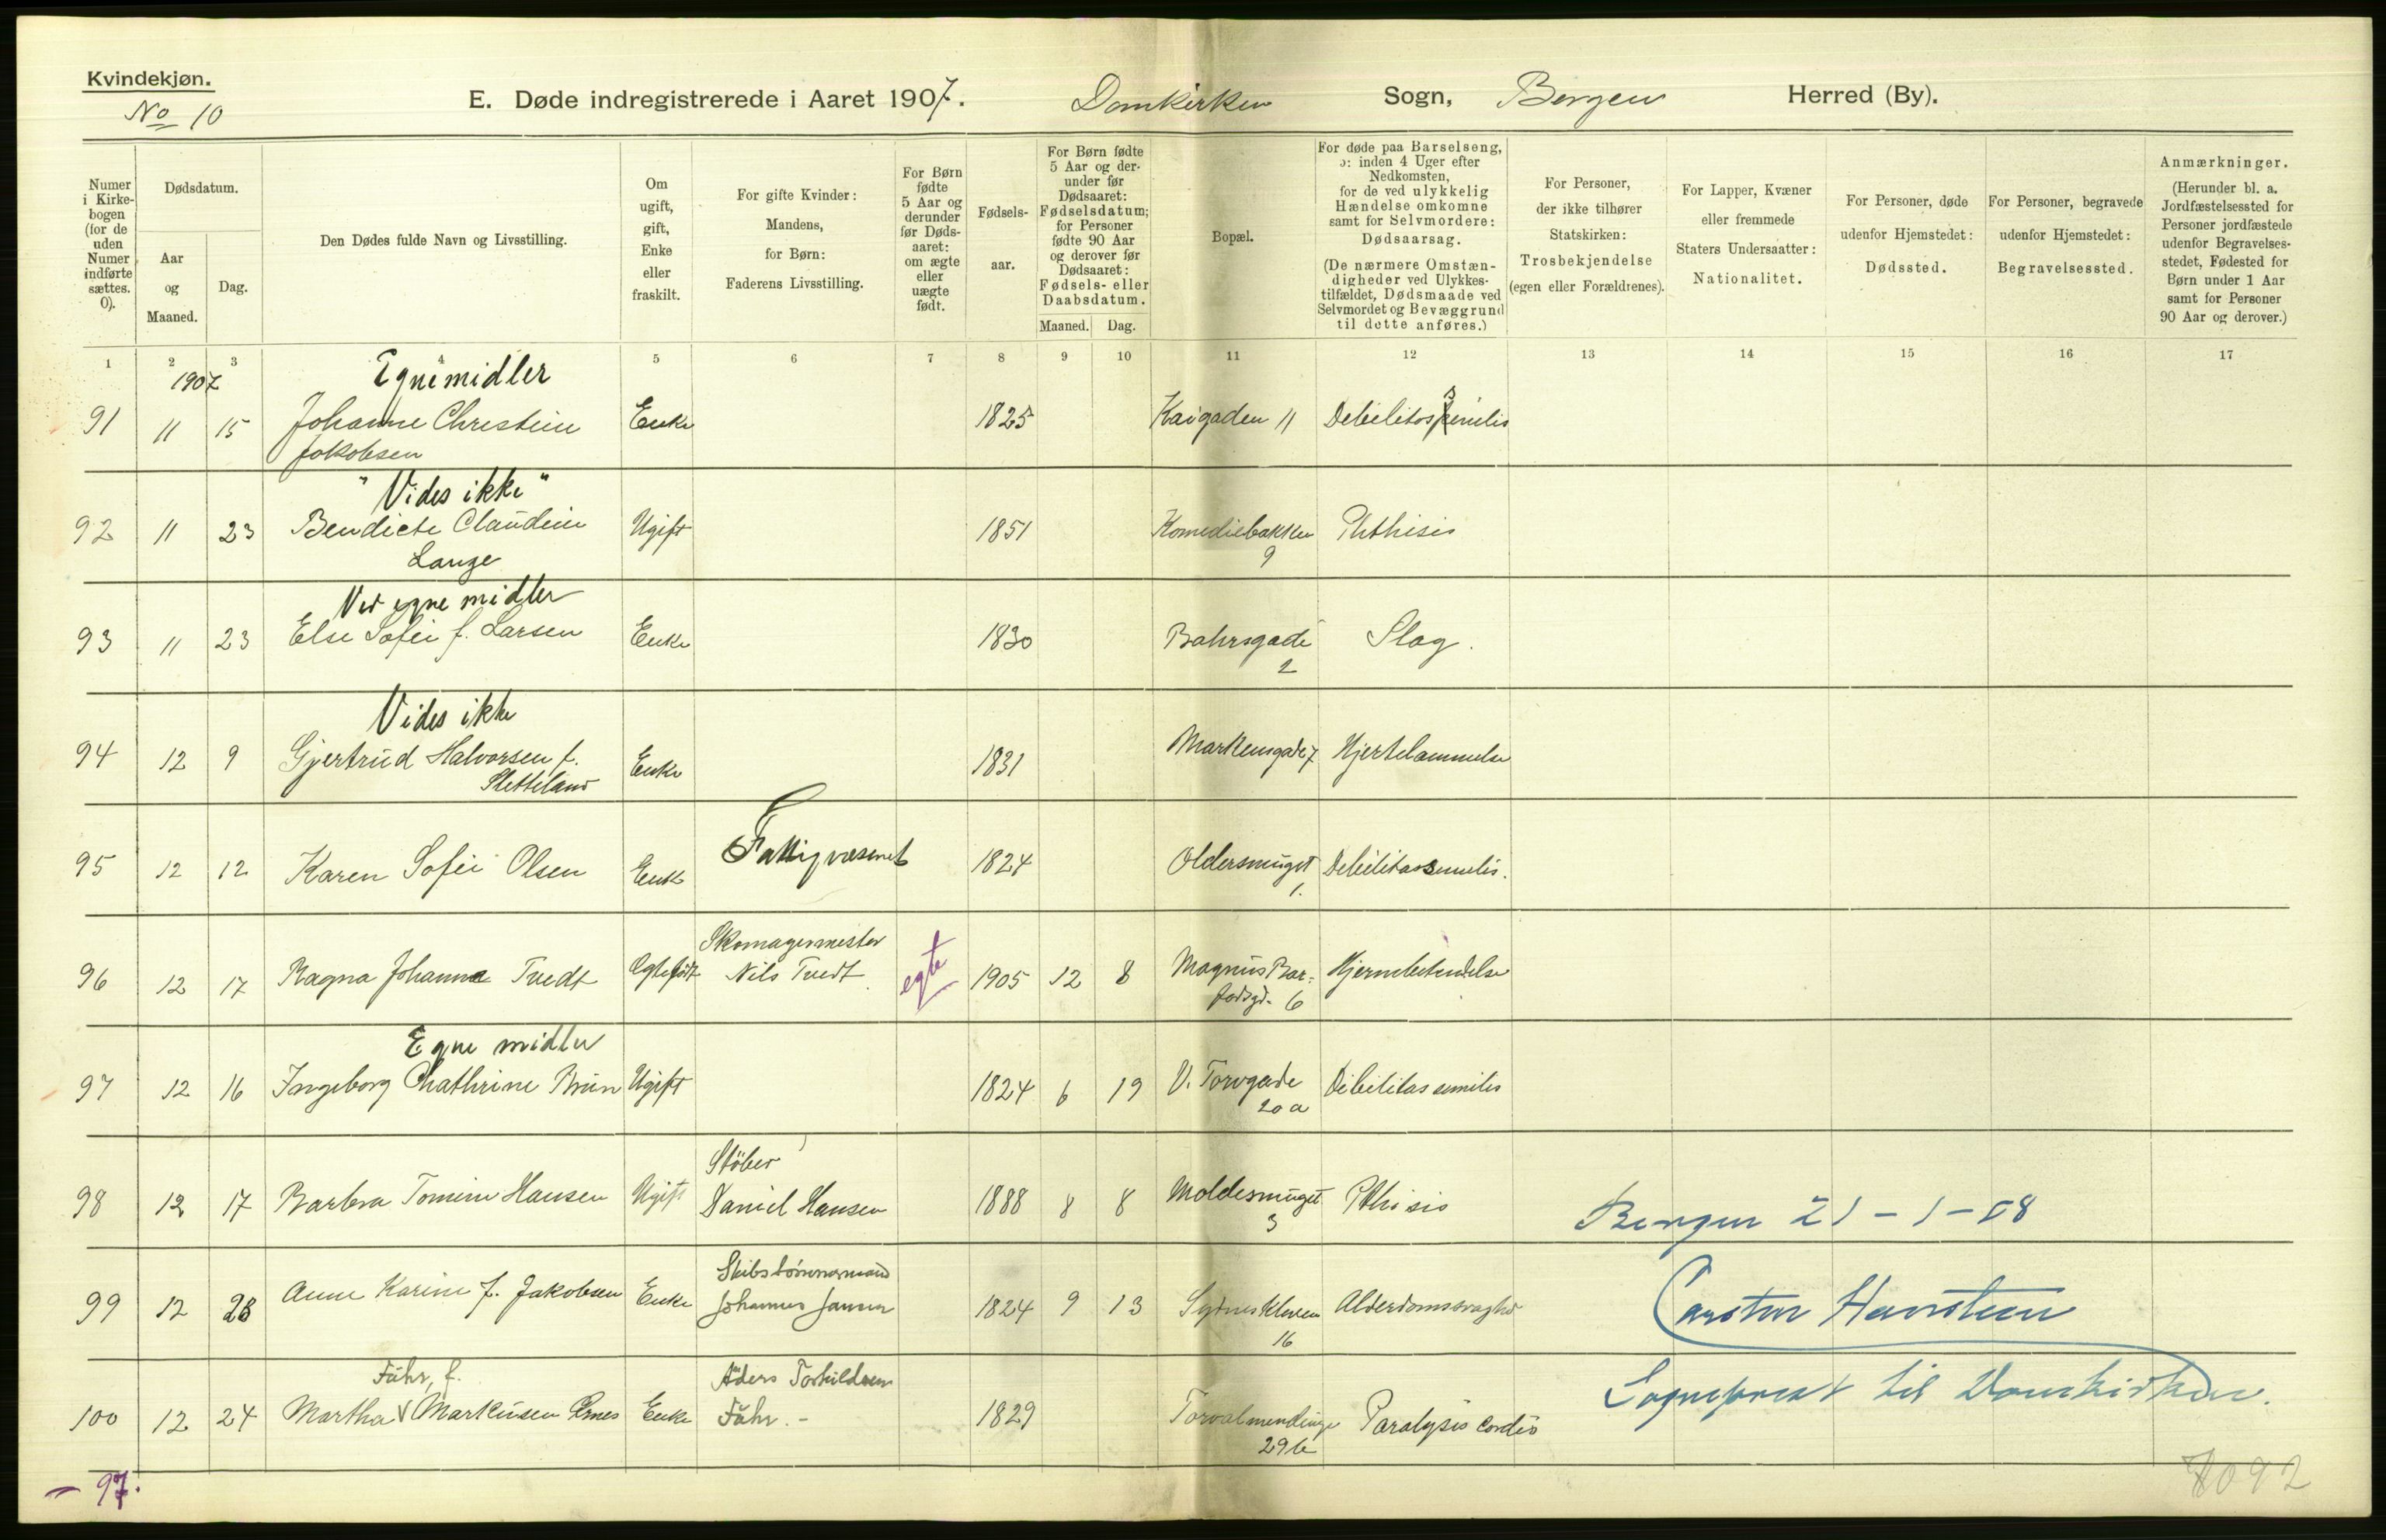 Kvindekjøn.
No 10
E. Døde indregistrerede i Aaret 1907. Domkirken Sogn, Bergen Herred (By).
Numer i Kirkebogen (for de uden Numer indførte sættes. 0).
Dødsdatum.
Aar og Maaned.
Dag.
Den Dødes fulde Navn og Livsstilling.
Om ugift, gift, Enke eller fraskilt.
For gifte Kvinder: Mandens, for Børn: Faderens Livsstilling.
For Børn fødte 5 Aar og derunder før Dødsaaret: om ægte eller uægte født.
Fødselsaar.
For Børn fødte 5 Aar og derunder før Dødsaaret: Fødselsdatum; for Personer fødte 90 Aar og derover før Dødsaaret: Fødsels- eller Daabsdatum.
Maaned. Dag.
Bopæl.
For døde paa Barselseng, ɔ: inden 4 Uger efter Nedkomsten, for de ved ulykkelig Hændelse omkomne samt for Selvmordere: Dødsaarsag. (De nærmere Omstændigheder ved Ulykkestilfældet, Dødsmaade ved Selvmordet og Bevæggrund til dette anføres.)
For Personer, der ikke tilhører Statskirken: Trosbekjendelse (egen eller Forældrenes).
For Lapper, Kvæner eller fremmede Staters Undersaatter: Nationalitet.
For Personer, døde udenfor Hjemstedet: Dødssted.
For Personer, begravede udenfor Hjemstedet: Begravelsessted.
Anmærkninger. (Herunder bl. a. Jordfæstelsessted for Personer jordfæstede udenfor Begravelsesstedet, Fødested for Børn under 1 Aar samt for Personer 90 Aar og derover.)
1 2 3 4 5 6 7 8 9 10 11 12 13 14 15 16 17
1907 Egne midler
91 11 15 Johanne Christine Enke 1825 Kaigaden 11 Debilitas senilis
Jakobsen
"Vides ikke"
92 11 23 Bendicte Claudine Ugift 1851 Komediebakken Phthisis
Lange 9
Ved egne midler
93 11 23 Else Sofie f. Larsen Enke 1830 Bahrsgade Slag.
2
Vides ikke
94 12 9 Gjertrud Halvorsen f. Enke 1831 Markensgade 7 Hjertelammelse
Sletteland
95 12 12 Karen Sofie Olsen Enke Fattigvæsenet 1824 Oldersmuget Debilitas senilis.
1.
Skomagermester
96 12 17 Ragna Johanna Tvedt Egtefødt Nils Tvedt egte 1905 12 8 Magnus Bar- Hjernebetændelse
fodsgd. 6
Egne midler
97 12 16 Ingeborg Chathrine Brun Ugift 1824 6 19 V. Torvgade Debilitas senilis
20 a
Støber
98 12 17 Barbra Tomine Hansen Ugift Daniel Hansen 1888 8 8 Moldesmuget Phthisis
3
Bergen 21-1-08
Skibstømmermand
99 12 28 Anne Karine f. Jakobsen Enke Johannes Jansen 1824 9 13 Sydneskleven Alderdomssvaghed
16
Carsten Hansteen
Fåhr, f. Aders Torkildsen
100 12 24 Martha Markusen Enke Fåhr.- 1829 Torvalmendinge Paralysis cordis
29 b
Sogneprest til Domkirken.
- 97.
8092